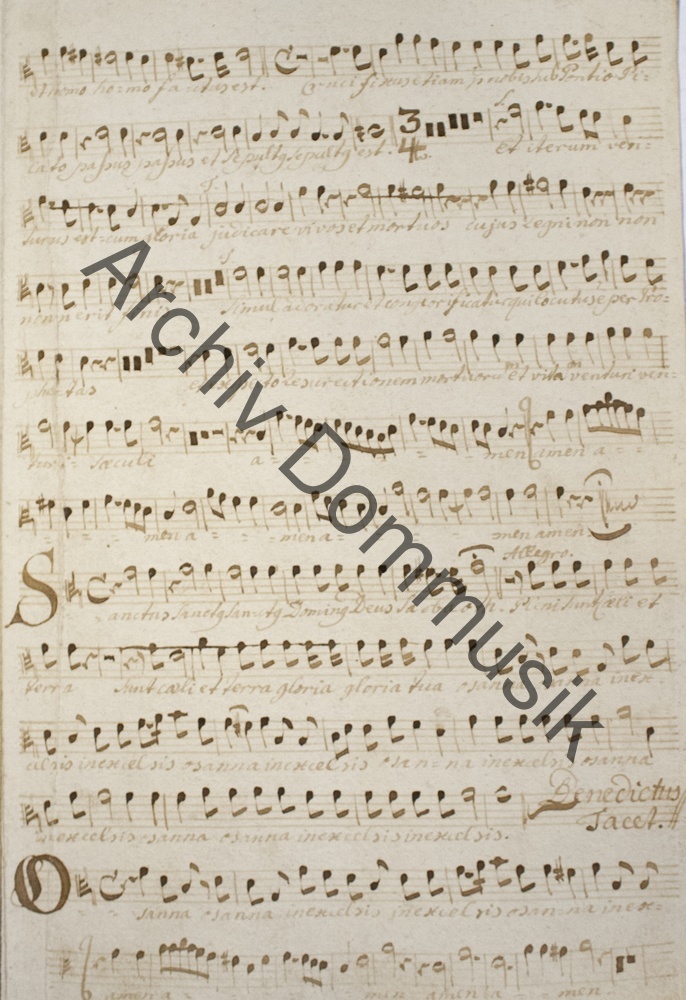 et homo homo factus est. Crucifixus etiam p nobis sub Pontio Pi=
lato passus passus et Sepultq Sepultq est. 3 4 S. et iterum ven=
turus est cum gloria judicare vivos et mortuos cujus regni non non
non erit finis simul adoratur et conglorificatur qui locutus e per Pro=
phetas et expecto resurectionem mortuoru et vita venturi ven=
turi= Saeculi a = = = = men amen a = =
= = = men a = = = men a = = = = men amen
Allegro.
Sanctus Sanctq Sanctq Dominq Deus Sabaoth. Pleni sunt caeli et
terra sunt caeli et terra gloria gloria tua osanna in ex=
celsis in excelsis osanna in excelsis osan=na in excelsis osanna
in excelsis osanna osanna in excelsis in excelsis.
Benedictus
Tacet.
Osanna osanna in excelsis in excelsis osanna in ex=
amen a = men amen a = men.
Archiv Dommusik